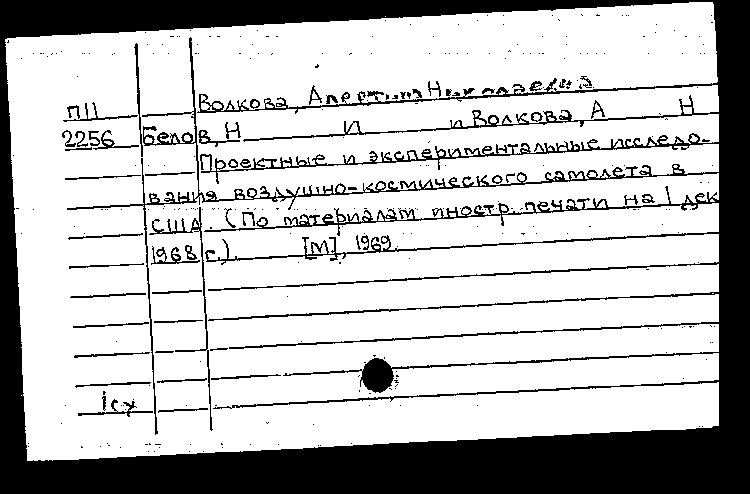 Волкова, Алевтина Николаевна
П11
2256 Белов, Н И и Волкова, А Н
Проектные и экспериментальные исследо-
вания воздушно-космического самолета в
США. (По материалам иностр. печати на 1 дек
1968 г.). [М], 1969.